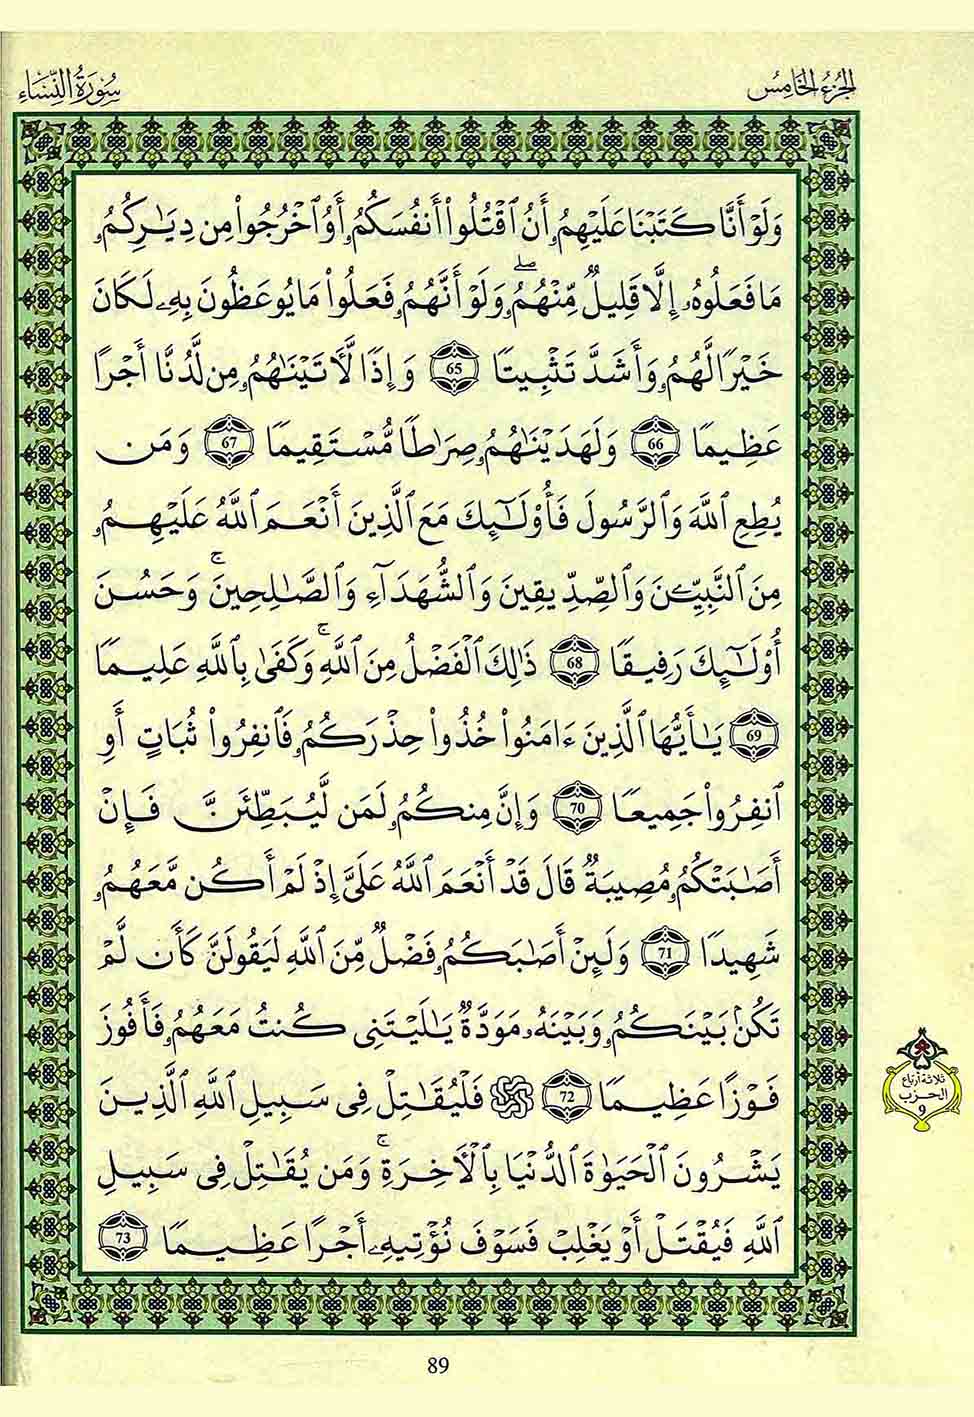 الجزء الخامس
سورة النساء
وَلَوْ أَنَّا كَتَبْنَا عَلَيْهِمُۥ أَنُ اُ۟قْتُلُوا۟ أَنفُسَكُمُۥ أَوُ اُ۟خْرُجُوا۟ مِن دِيَٰرِكُمُۥ
مَا فَعَلُوهُۥ إِلَّا قَلِيلٌ مِّنْهُمُۥ ۖ وَلَوْ أَنَّهُمُۥ فَعَلُوا۟ مَا يُوعَظُونَ بِهِۦ لَكَانَ
خَيْرًا لَّهُمُۥ وَأَشَدَّ تَثْبِيتًا 65 وَإِذًا لَّأٓتَيْنَٰهُمُۥ مِن لَّدُنَّا أَجْرًا
عَظِيمًا 66 وَلَهَدَيْنَٰهُمُۥ صِرَٰطًا مُّسْتَقِيمًا 67 وَمَن
يُطِعِ ٱللَّهَ وَٱلرَّسُولَ فَأُو۟لَٰٓئِكَ مَعَ ٱلَّذِينَ أَنْعَمَ ٱللَّهُ عَلَيْهِمُۥ
مِنَ ٱلنَّبِيِّـۧنَ وَٱلصِّدِّيقِينَ وَٱلشُّهَدَآءِ وَٱلصَّٰلِحِينَ ۚ وَحَسُنَ
أُو۟لَٰٓئِكَ رَفِيقًا 68 ذَٰلِكَ ٱلْفَضْلُ مِنَ ٱللَّهِ ۚ وَكَفَىٰ بِٱللَّهِ عَلِيمًا
69 يَٰٓأَيُّهَا ٱلَّذِينَ ءَامَنُوا۟ خُذُوا۟ حِذْرَكُمُۥ فَٱنفِرُوا۟ ثُبَاتٍ أَوِ
ٱنفِرُوا۟ جَمِيعًا 70 وَإِنَّ مِنكُمُۥ لَمَن لَّيُبَطِّئَنَّ فَإِنْ
أَصَٰبَتْكُمُۥ مُصِيبَةٌ قَالَ قَدْ أَنْعَمَ ٱللَّهُ عَلَىَّ إِذْ لَمْ أَكُن مَّعَهُمُۥ
شَهِيدًا 71 وَلَئِنْ أَصَٰبَكُمُۥ فَضْلٌ مِّنَ ٱللَّهِ لَيَقُولَنَّ كَأَن لَّمْ
تَكُنۢ بَيْنَكُمُۥ وَبَيْنَهُۥ مَوَدَّةٌ يَٰلَيْتَنِى كُنتُ مَعَهُمُۥ فَأَفُوزَ
فَوْزًا عَظِيمًا 72 ۞ فَلْيُقَٰتِلْ فِى سَبِيلِ ٱللَّهِ ٱلَّذِينَ
يَشْرُونَ ٱلْحَيَوٰةَ ٱلدُّنْيَا بِٱلْأٓخِرَةِ ۚ وَمَن يُقَٰتِلْ فِى سَبِيلِ
ٱللَّهِ فَيُقْتَلْ أَوْ يَغْلِبْ فَسَوْفَ نُؤْتِيهِۦ أَجْرًا عَظِيمًا 73
ثلاثة أرباع
الحزب
9
89